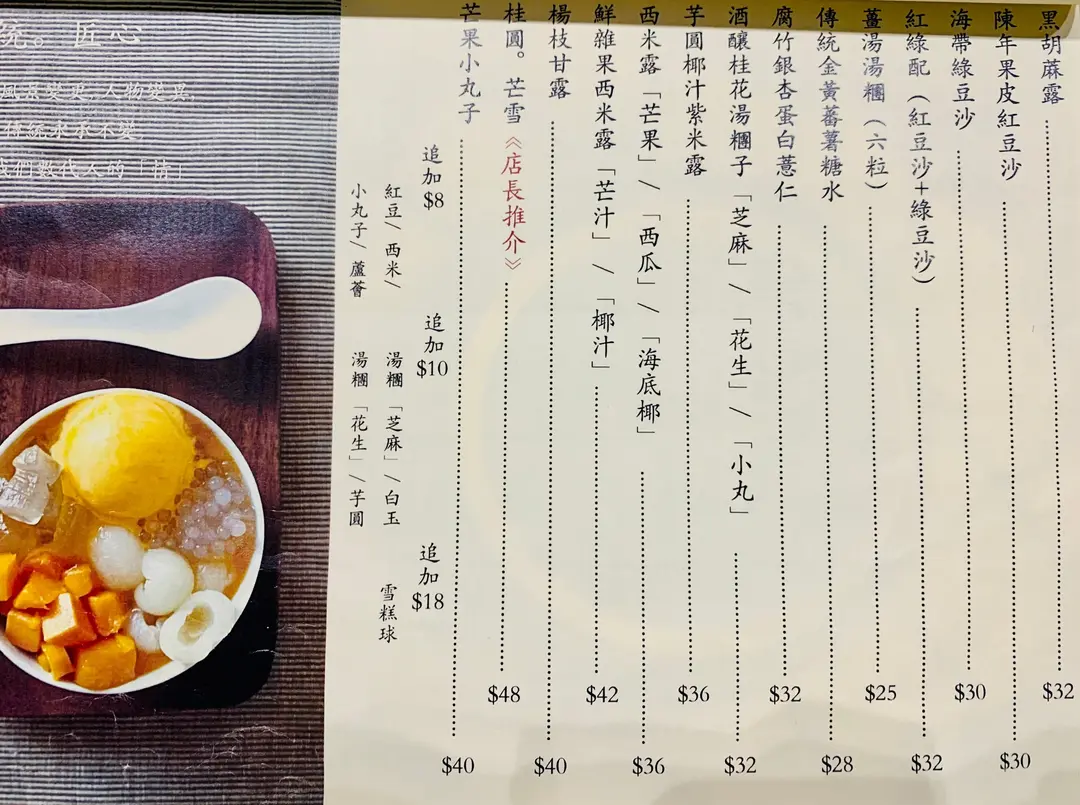 黑胡蔴露 $32
陳年果皮紅豆沙 $30
海帶綠豆沙 $30
紅綠配（紅豆沙+綠豆沙） $32
薑湯湯糰（六粒） $25
傳統金黃蕃薯糖水 $28
腐竹銀杏蛋白薏仁 $32
酒釀桂花湯糰子「芝麻」/「花生」/「小丸」 $32
芋圓椰汁紫米露 $36
西米露「芒果」/「西瓜」/「海底椰」 $36
鮮雜果西米露「芒汁」/「椰汁」 $42
楊枝甘露 $40
桂圓。芒雪《店長推介》 $48
芒果小丸子 $40
追加$8
紅豆/西米/
小丸子/蘆薈
追加$10
湯糰「芝麻」/白玉
湯糰「花生」/芋圓
追加$18
雪糕球
統。匠心